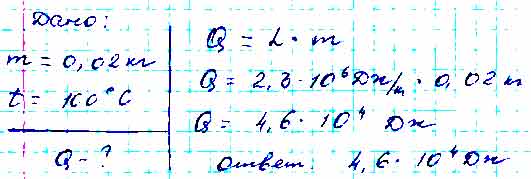 Дано:
m = 0,02 кг
t = 100°C
Q - ?
Q = L · m
Q = 2,3 · 10⁶ Дж/кг · 0,02 кг
Q = 4,6 · 10⁴ Дж
ответ: 4,6 · 10⁴ Дж